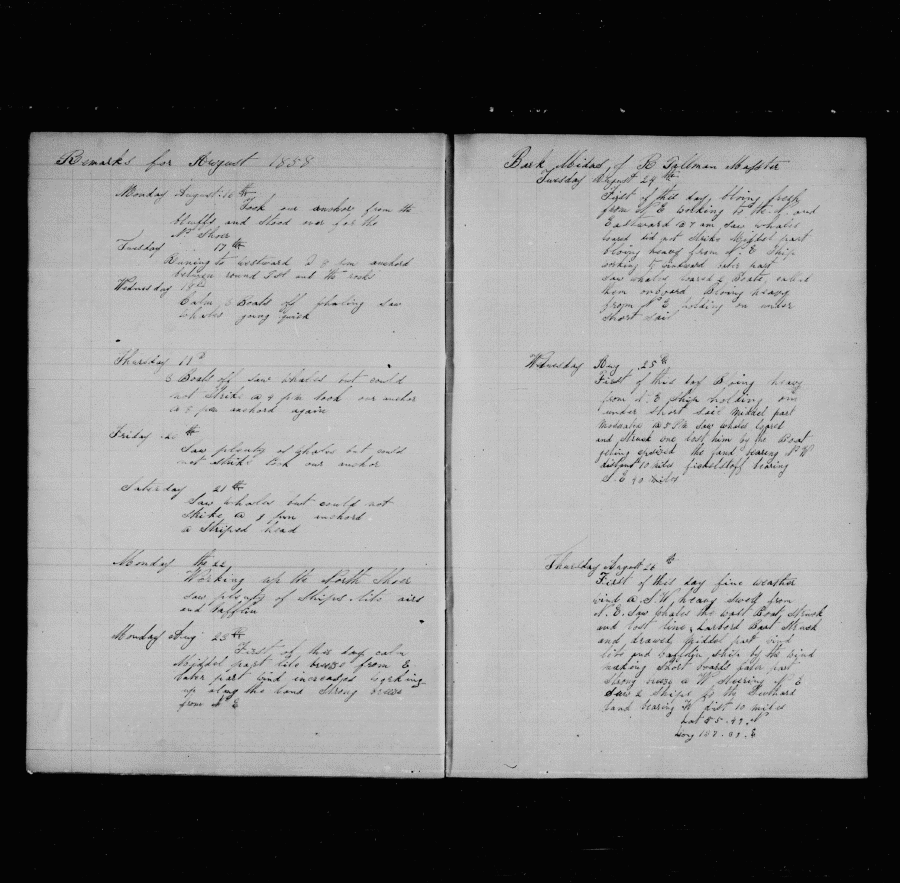 Remarks for August 1858
Monday August 16th
Took our anchor from the
bluffs and stood over for the
N. Shoer
Tuesday 17th
Runing to westward 2 pm anchord
betwen round and the rocks
Wednesday 18th
Calm, 3 Boats off whaling saw
whales going quick
Thursday 19th
3 Boats off saw whales but could
not strike at 4 pm took our anchor
at 8 pm anchord again
Friday 20th
Saw plenty of whales but could
not strike took our anchor
Saturday 21th
Saw whales but could not
Strike at 8 pm anchord
a Striped head
Monday the 22
Working up the North Shoer
Saw plenty of Ships lite airs
and bafflin
Monday Aug 23th
First of this day calm
Middel part lite breese from E
later part wind increases working
up along the land Strong breese
from N E
Bark Midas of R Tallman Master
Tuesday August 24th
First of this day bloing fresh
from N E working to the and
Eastward at 7 am saw whales
loared did not strike Middel part
bloing heavy from N. E Ship
working to windward later part
saw whales loared 2 Boats, called
them onboard Bloing heavy
from N E holding on under
Short sail
Wednesday Aug 25th
First of this day Bloing heavy
from N. E Ship holding on
under Short Sail Middel part
Modoratin at 5 P.M Saw whales loared
and Struck one lost him by the Boat
geting the land bearing N W
distant 10 miles bearing
S. E 40 miles
Thursday August 26th
First of this day fine weather
wind at S.W, heavy swell from
N. E. Saw whales the wast Boat Struck
and lost line, Larbord Boat Struck
and drawed, Middel part wind
lite and bafflin Ship by the wind
making Short boards later part
Strong breese at W Steering N E
Saw 2 Ships to the
land bearing W dist 10 miles
Lat 55.47 N
Long 137.39.E